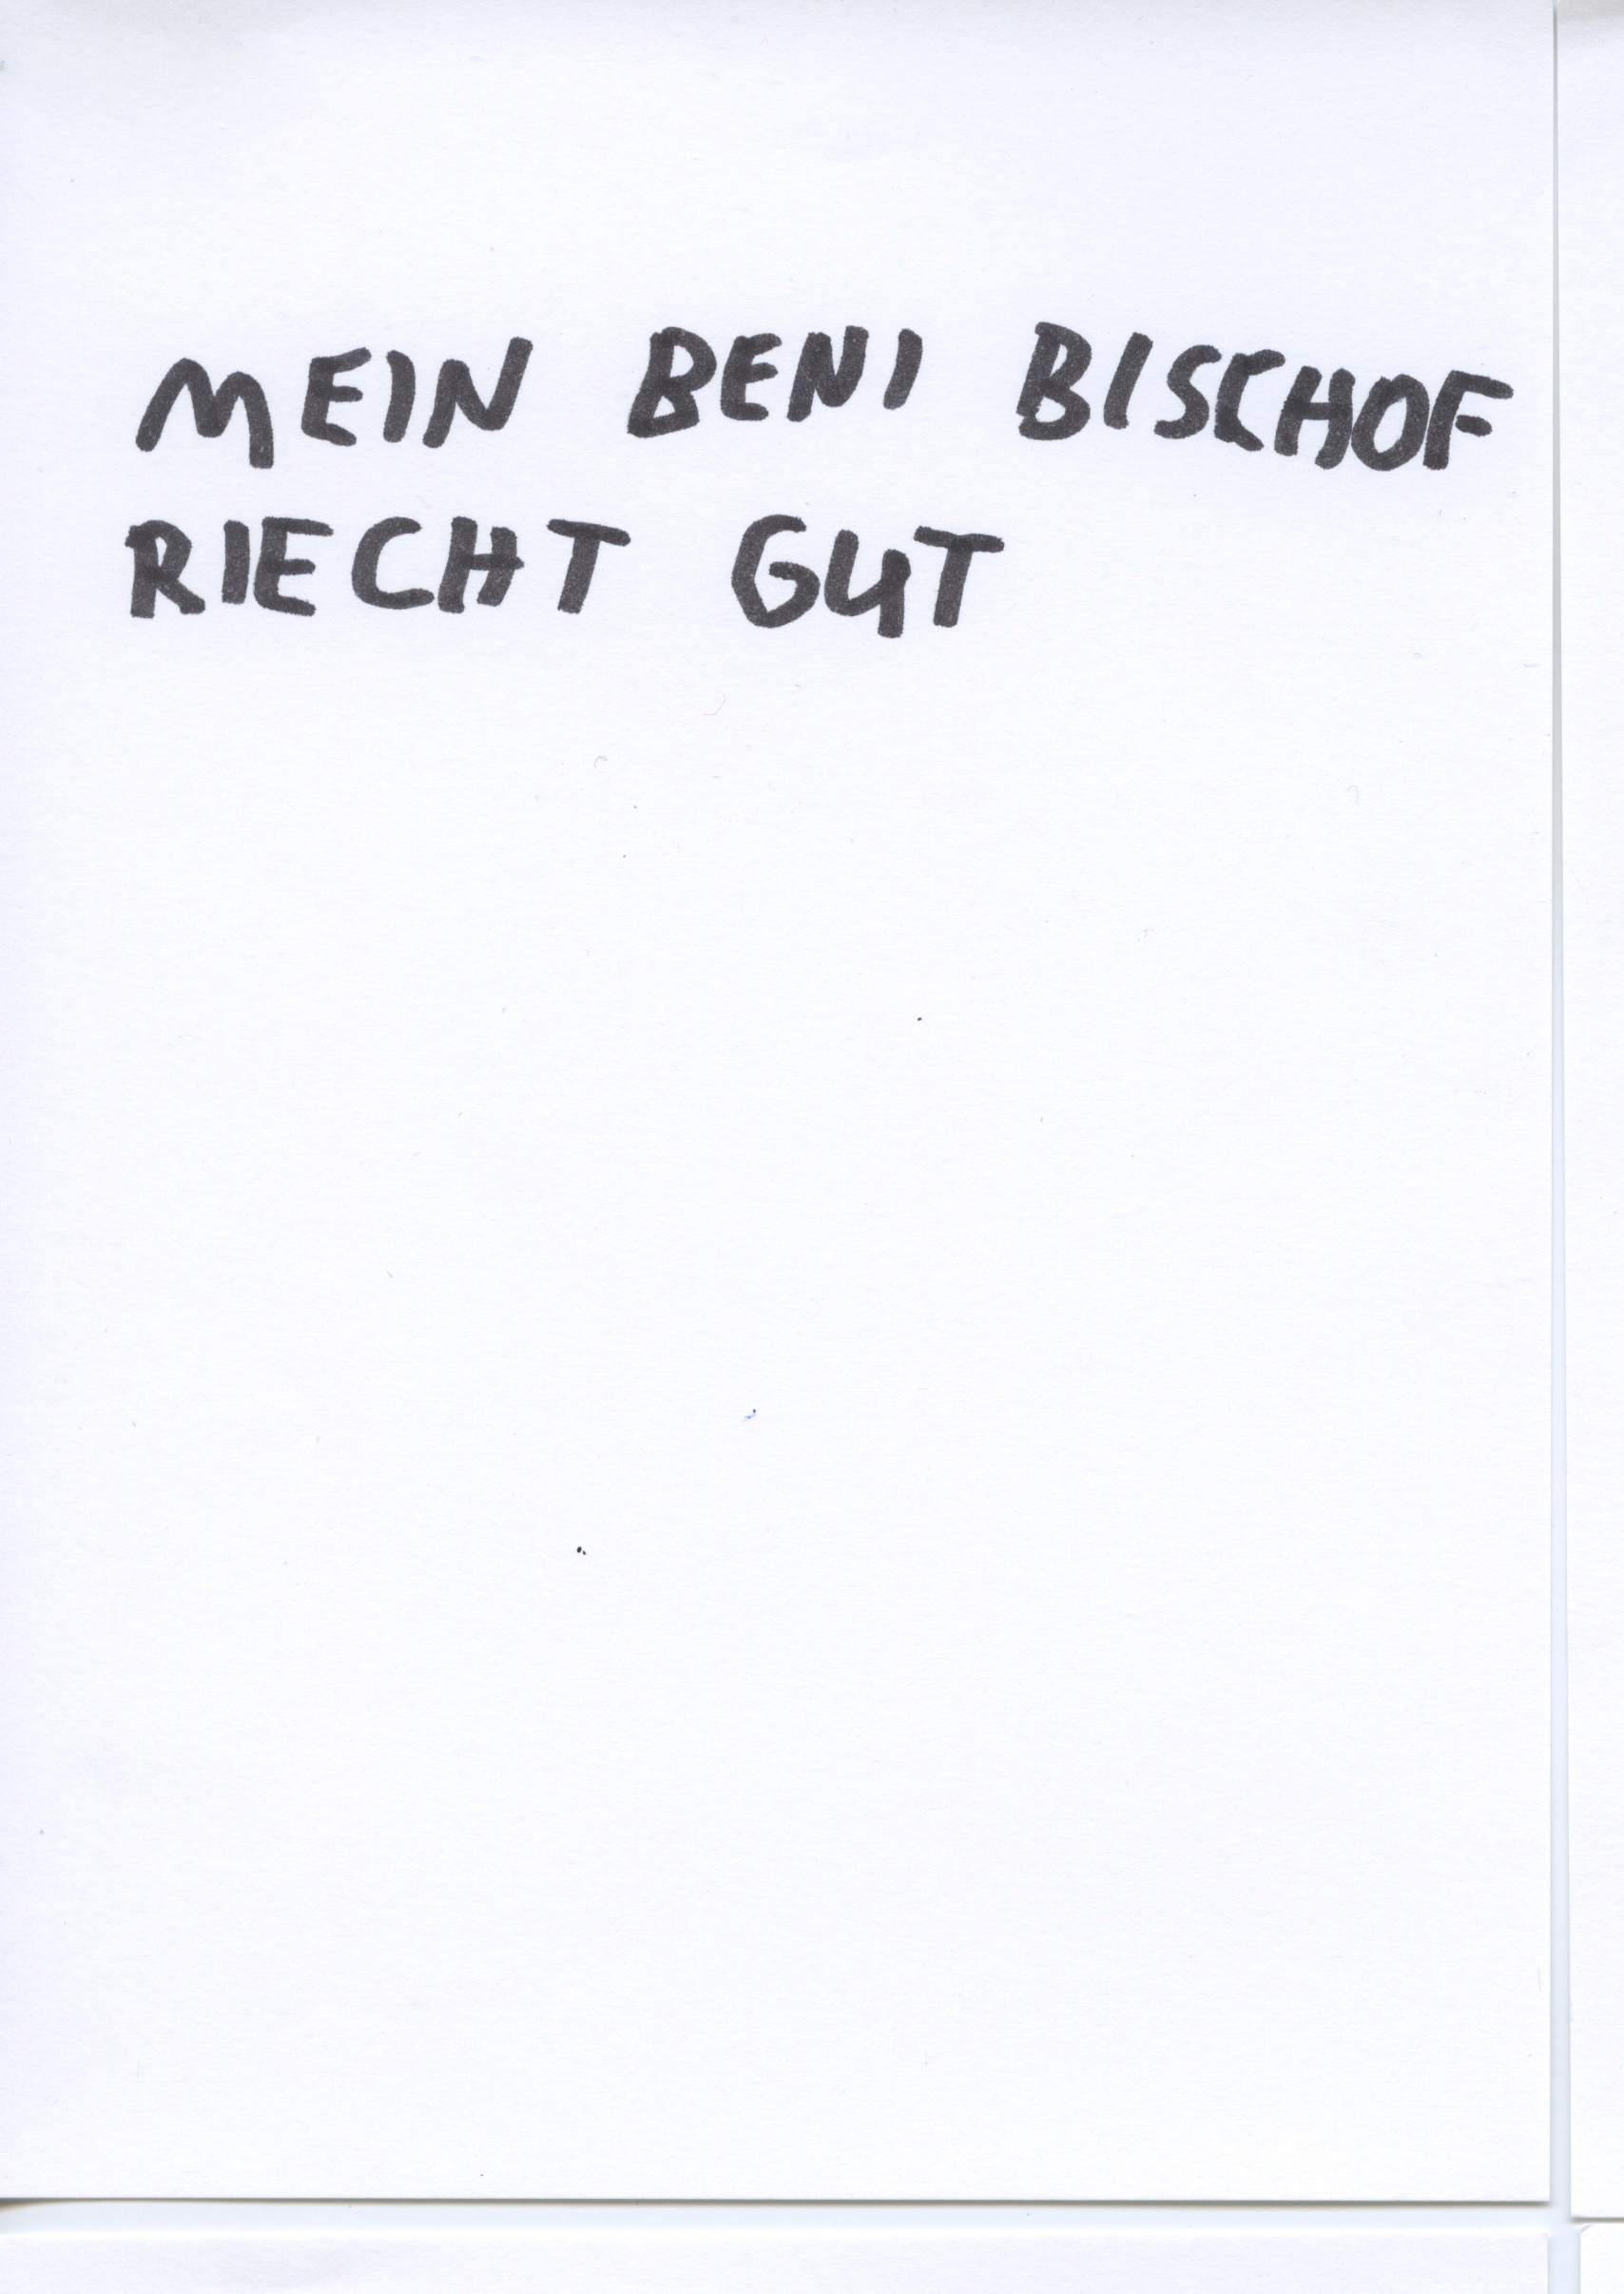 MEIN BENI BISCHOF
RIECHT GUT